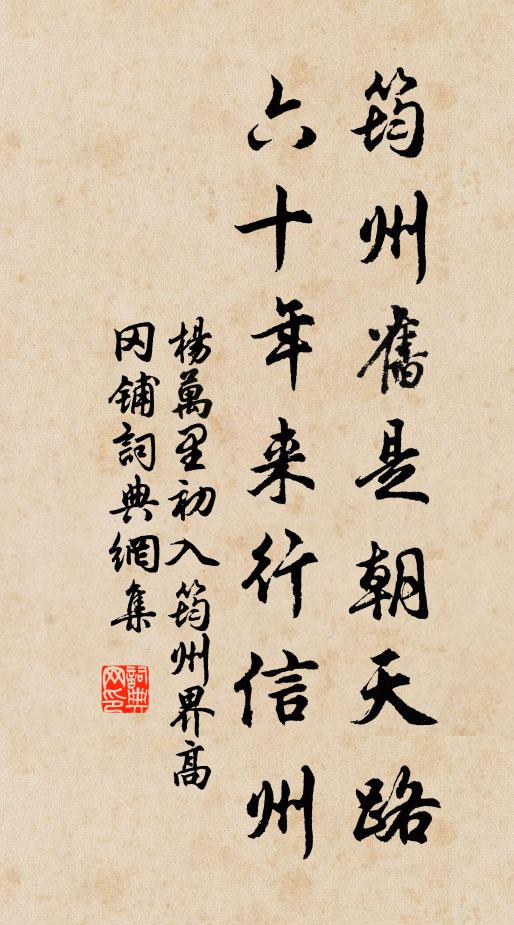 筠州舊是朝天路
六十年来行信州
楊萬里初入筠州界高
冈鋪詞典網集
詞典
网印